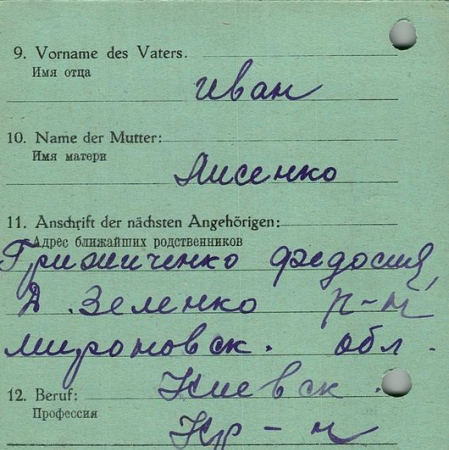 9. Vorname des Vaters.
Имя отца
иван
10. Name der Mutter:
Имя матери
Лисенко
11. Anschrift der nächsten Angehörigen:
Адрес ближайших родственников
Грижиченко федосия,
Д. Зеленко р-н
мироновск. обл.
12. Beruf: Киевск.
Профессия
Кр-н